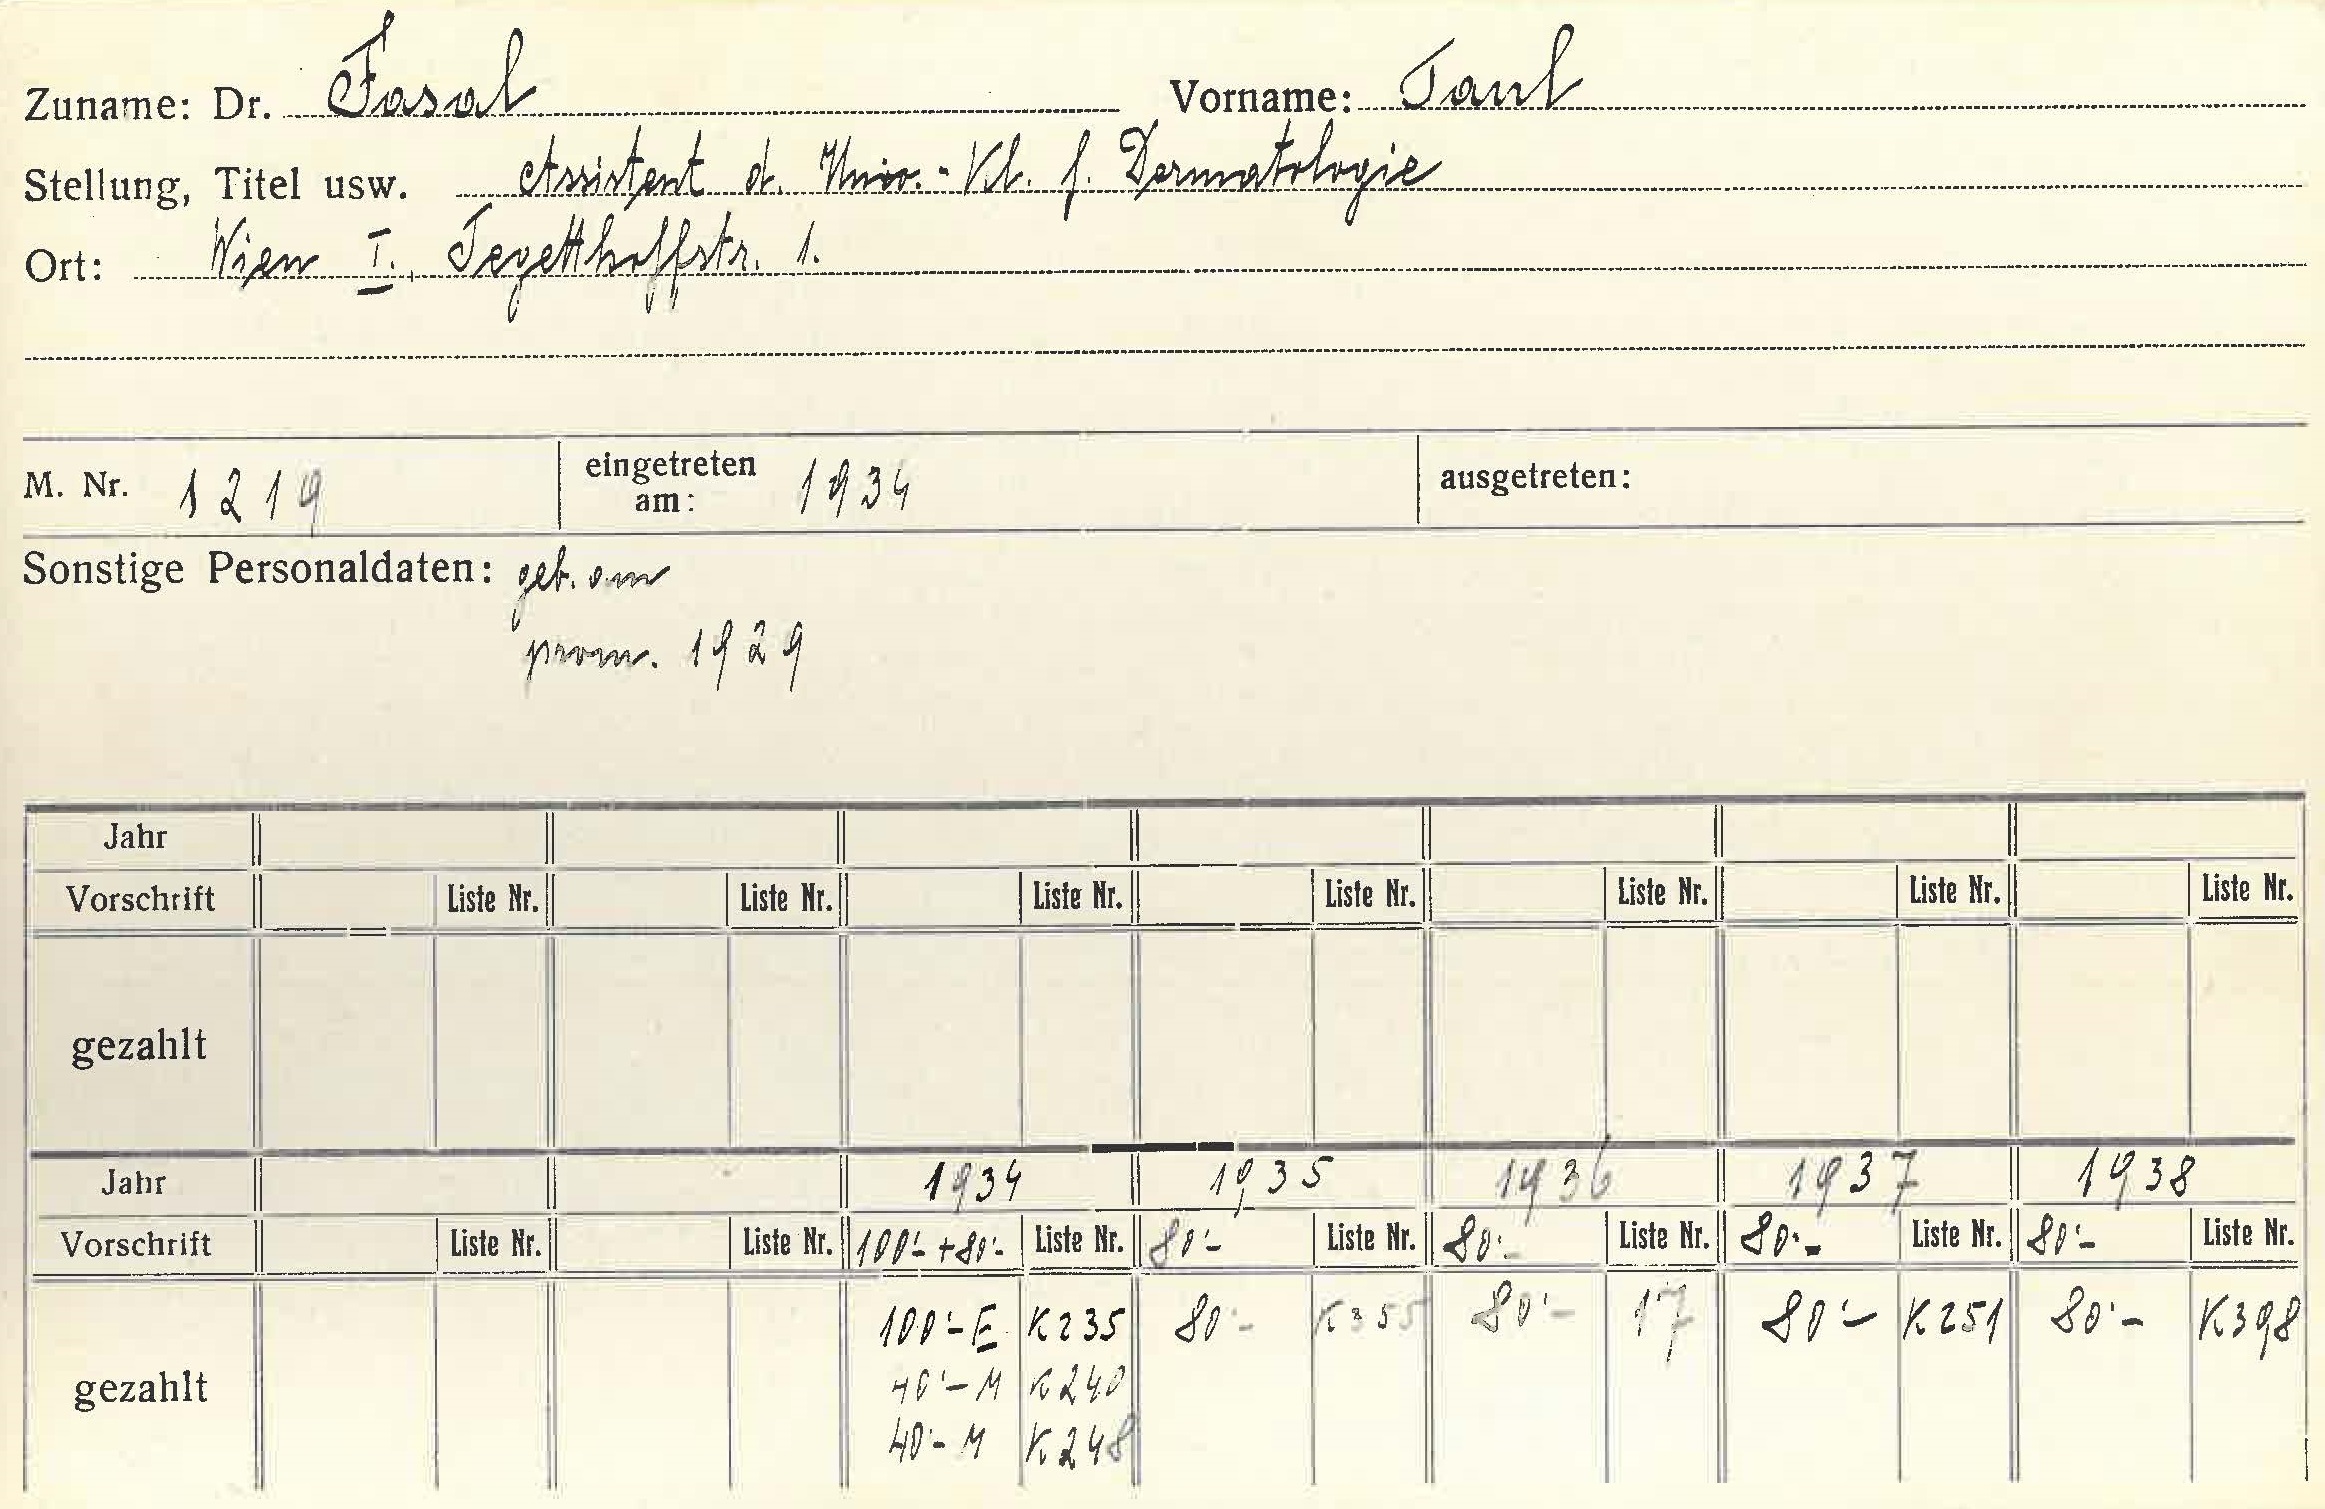 Zuname: Dr. Fasal Vorname: Paul
Stellung, Titel usw. Assistent d. Univ.-Kl. f. Dermatologie
Ort: Wien I., Tegetthoffstr. 1.
M. Nr. 1219 eingetreten am: 1934 ausgetreten:
Sonstige Personaldaten: geb. am
prom. 1929
Jahr
Vorschrift Liste Nr. Liste Nr. Liste Nr. Liste Nr. Liste Nr. Liste Nr. Liste Nr.
gezahlt
Jahr 1934 1935 1936 1937 1938
Vorschrift Liste Nr. Liste Nr. 100'- + 80'- Liste Nr. 80'- Liste Nr. 80'- Liste Nr. 80'- Liste Nr. 80'- Liste Nr.
gezahlt 100'- E K 235 80'- K 355 80'- 17 80'- K 251 80'- K 398
40'- M K 240
40'- M K 248